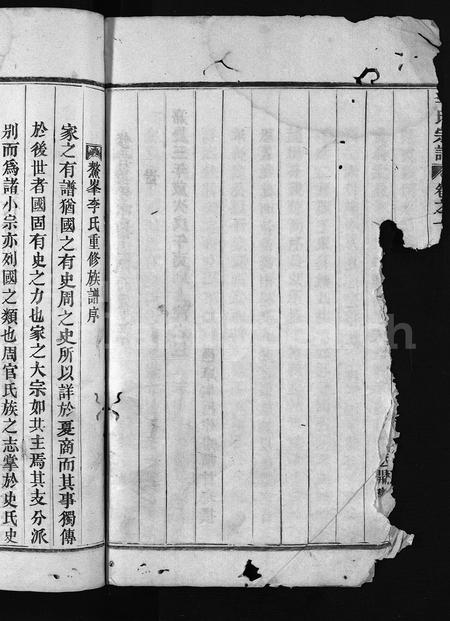 李氏宗譜
卷之一
鰲峯李氏重修族譜序
家之有譜猶國之有史周之史所以詳於夏商而其事獨傳
於後世者國固有史之力也家之大宗如共主焉其支分派
别而爲諸小宗亦列國之類也周官氏族之志掌於史氏史